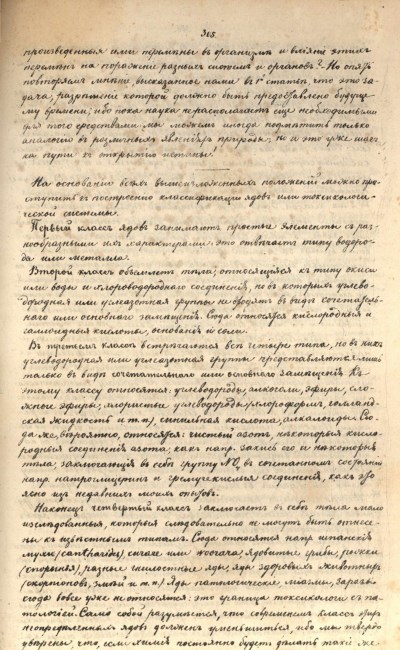 305.
произведенныя ими перемѣны въ организмѣ и вліяніе этихъ
перемѣнъ на пораженіе разныхъ системъ и органовъ? Но опять
повторяемъ мнѣніе высказанное нами въ 1й статьѣ, что это за-
дача, разрѣшеніе которой должно быть предоставлено будуще-
му времени; ибо пока наука не располагаетъ еще необходимыми
для того средствами мы можемъ иногда подмѣтить только
аналогію въ различныхъ явленіяхъ природы; но и это уже
ка пути къ открытію истины.
На основаніи всѣхъ вышеизложенныхъ положеній можно при-
ступить къ построенію классификаціи ядовъ или токсикологи-
ческой системы.
Первый классъ ядовъ занимаютъ простые элементы съ раз-
нообразными ихъ характерами: это отвѣчаетъ типу водоро-
да или металла.
Второй классъ объемлетъ тѣла, относящіяся къ типу окиси
или воды и хлороводороднаго соединенія, но въ которыхъ углево-
дородная или углеазотная группы не входятъ въ видѣ сочетатель-
наго или основнаго замѣщенія. Сюда относятся кислородныя и
галоидныя кислоты, основанія и соли.
Въ третьемъ классѣ встрѣчаются всѣ четыре типа, но въ нихъ
углеводородная или углеазотная группы представляются
только въ видѣ сочетательнаго или основнаго замѣщенія. Къ
этому классу относятся: углеводороды, алкоголи, эфиры, сло-
жные эфиры, хлористые углеводороды (хлороформъ, голланд-
ская жидкость и т.п.), синильная кислота, алкалоиды. Сю-
да же, вѣроятно, относятся: чистый азотъ, нѣкоторыя кисло-
родныя соединенія азота, какъ напр. закись его и нѣкоторыя
тѣла, заключающія въ себѣ группу NO₂ въ сочетанномъ состояніи
напр. нитроглицеринъ и гремучекислыя соединенія, какъ это
ясно изъ недавнихъ моихъ опытовъ.
Наконецъ четвертый классъ заключаетъ въ себѣ тѣла мало
изслѣдованныя, которыя слѣдовательно не могутъ быть отнесе-
ны къ извѣстнымъ типамъ. Сюда относятся напр. шпанскія
мухи (cantharides), сумахъ или ядовитые грибы, рожки
(спорынья), разные гнилостные яды, яды здоровыхъ животныхъ
(скорпіоновъ, змѣй и т.п.) Яды патологическіе міазмы, заразы
сюда вовсе уже не относятся: это граница токсикологіи съ па-
тологіей. Само собой разумѣется, что современемъ классъ этихъ
неопредѣленныхъ ядовъ долженъ уменьшиться, ибо мы твердо
увѣрены, что, если химія постоянно будетъ дѣлать такіе же